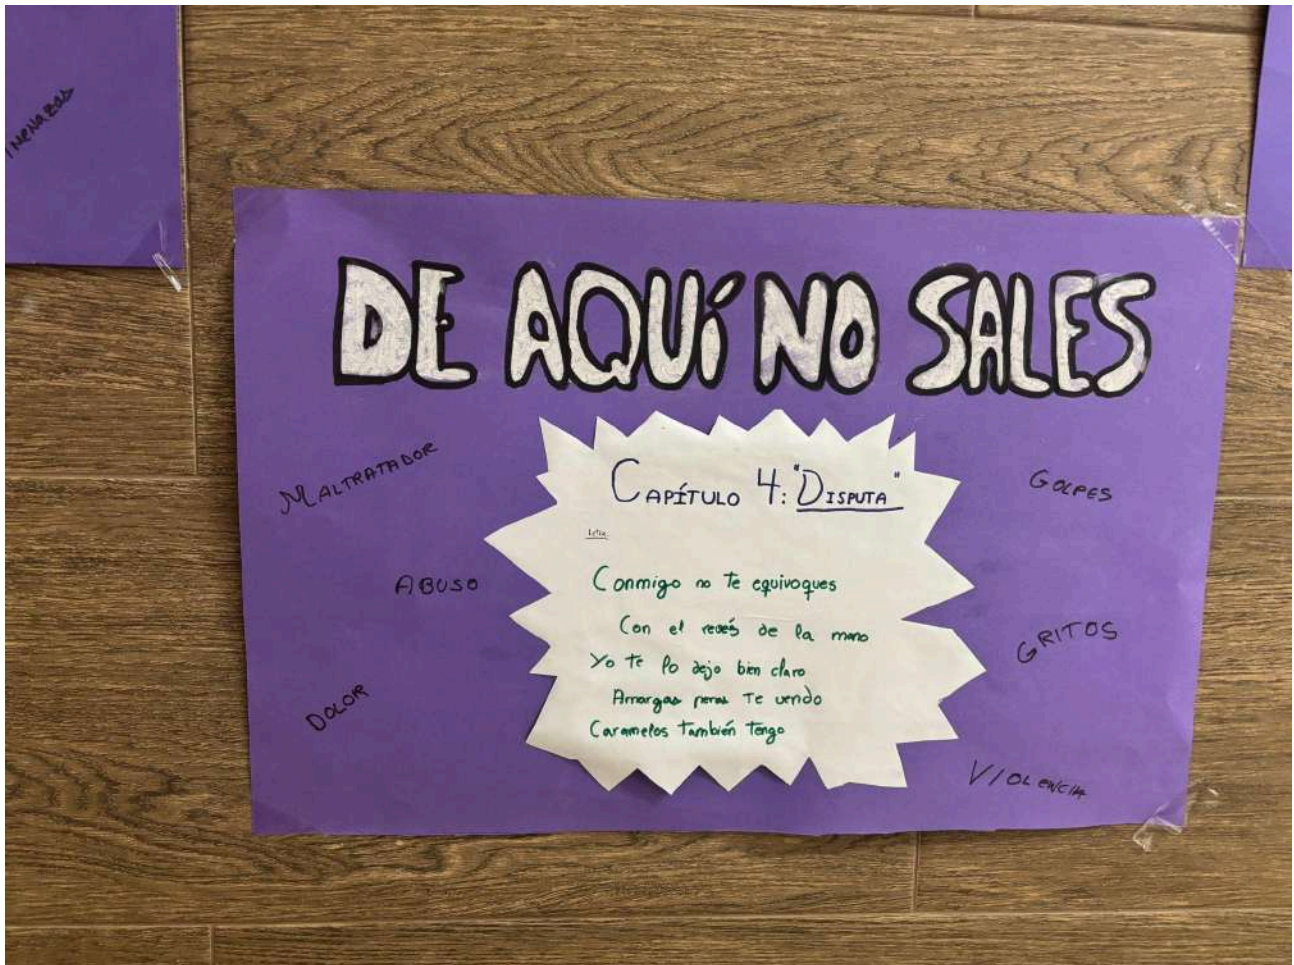 DE AQUÍ NO SALES
CAPÍTULO 4: "DISPUTA"
Letra:
Conmigo no te equivoques
Con el revés de la mano
Yo te lo dejo bien claro
Amargas penas te vendo
Caramelos también tengo
MALTRATADOR
ABUSO
DOLOR
GOLPES
GRITOS
VIOLENCIA